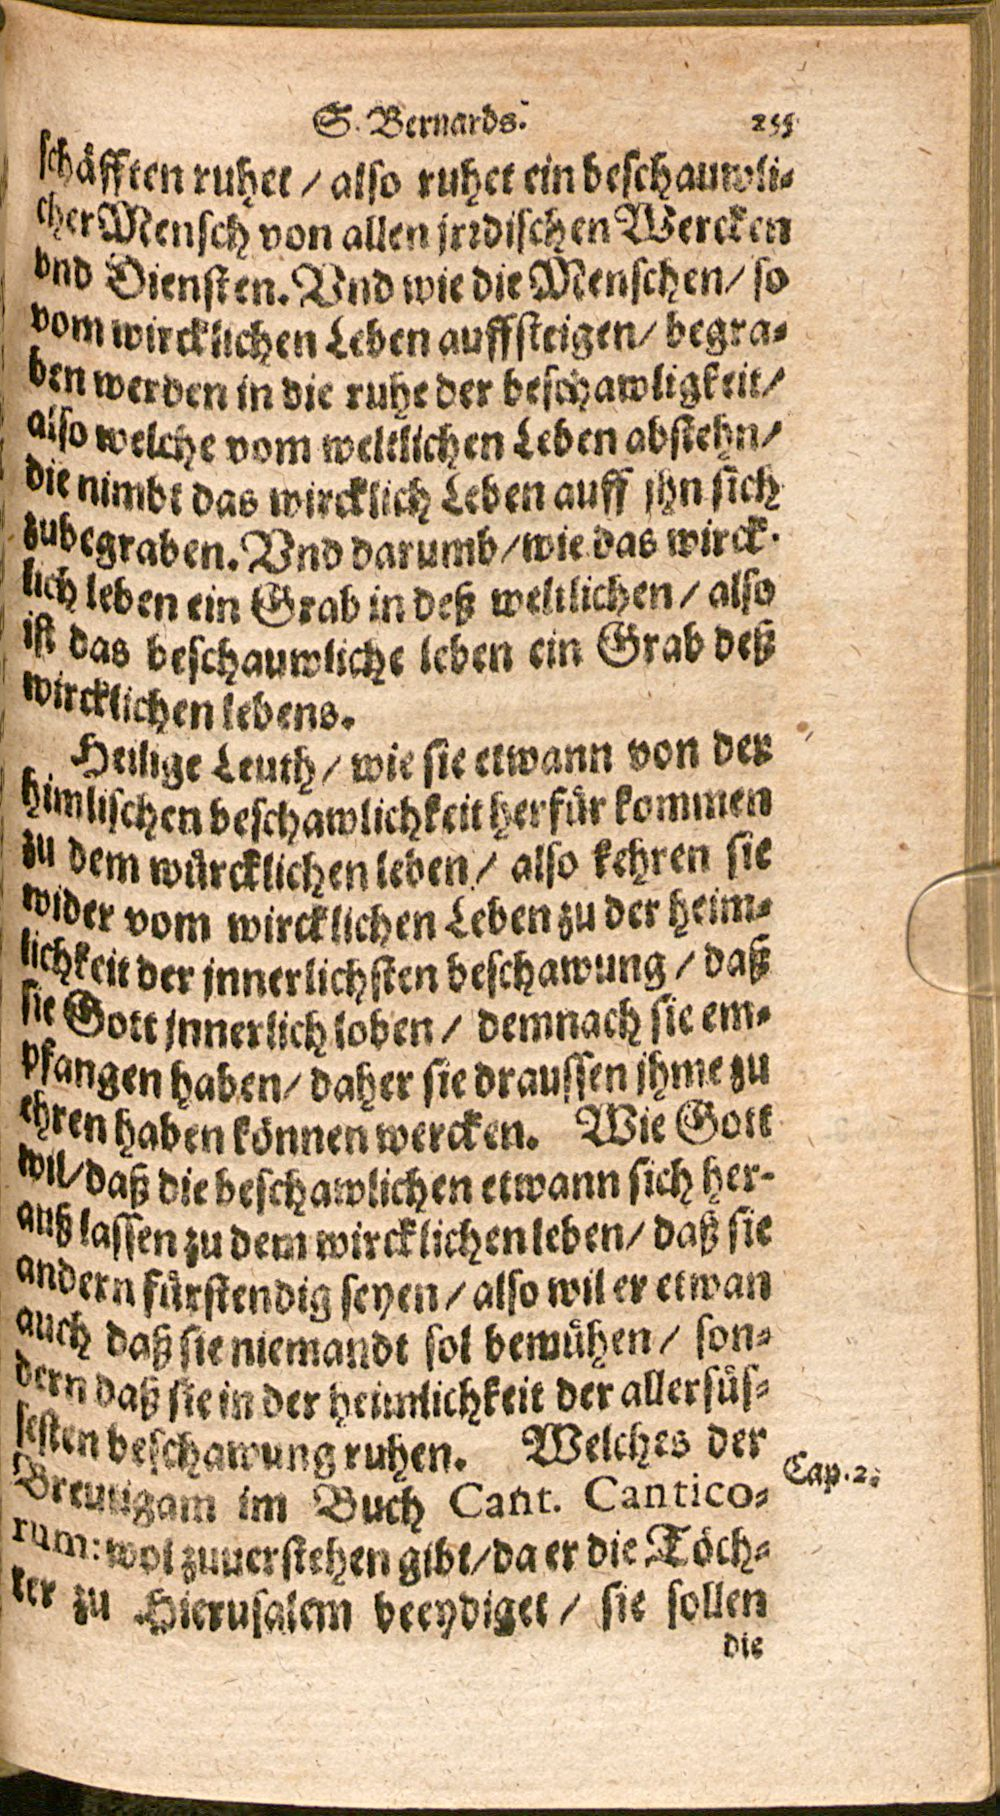 S. Bernards. 255
schäfften ruhet / also ruhet ein beschauwli-
cher Mensch von allen jrzdischen Wercken
vnd Diensten. Vnd wie die Menschen / so
vom wircklichen Leben auffsteigen / begra-
ben werden in die ruhe der beschawligkeit /
also welche vom weltlichen Leben abstehn /
die nimbt das wircklich Leben auff jhn sich
zubegraben. Vnd darumb / wie das wirck-
lich leben ein Grab in deß weltlichen / also
ist das beschauwliche leben ein Grab deß
wircklichen lebens.
Heilige Leuth / wie sie etwann von der
himlischen beschawlichkeit herfür kommen
zu dem würcklichen leben / also kehren sie
wider vom wircklichen Leben zu der heim-
lichkeit der jnnerlichsten beschawung / daß
sie Gott jnnerlich loben / demnach sie em-
pfangen haben / daher sie draussen jhme zu
ehren haben können wercken. Wie Gott
wil / daß die beschawlichen etwann sich her-
auß lassen zu dem wircklichen leben / daß sie
andern fürstendig seyen / also wil er etwan
auch daß sie niemandt sol bemühen / son-
dern daß sie in der heimlichkeit der allersüs-
sesten beschawung ruhen. Welches der
Breutigam im Buch Cant. Cantico-
Cap. 2.
rum: wol zuuerstehen gibt / da er die Töch-
ter zu Hierusalem beeydiget / sie sollen
die